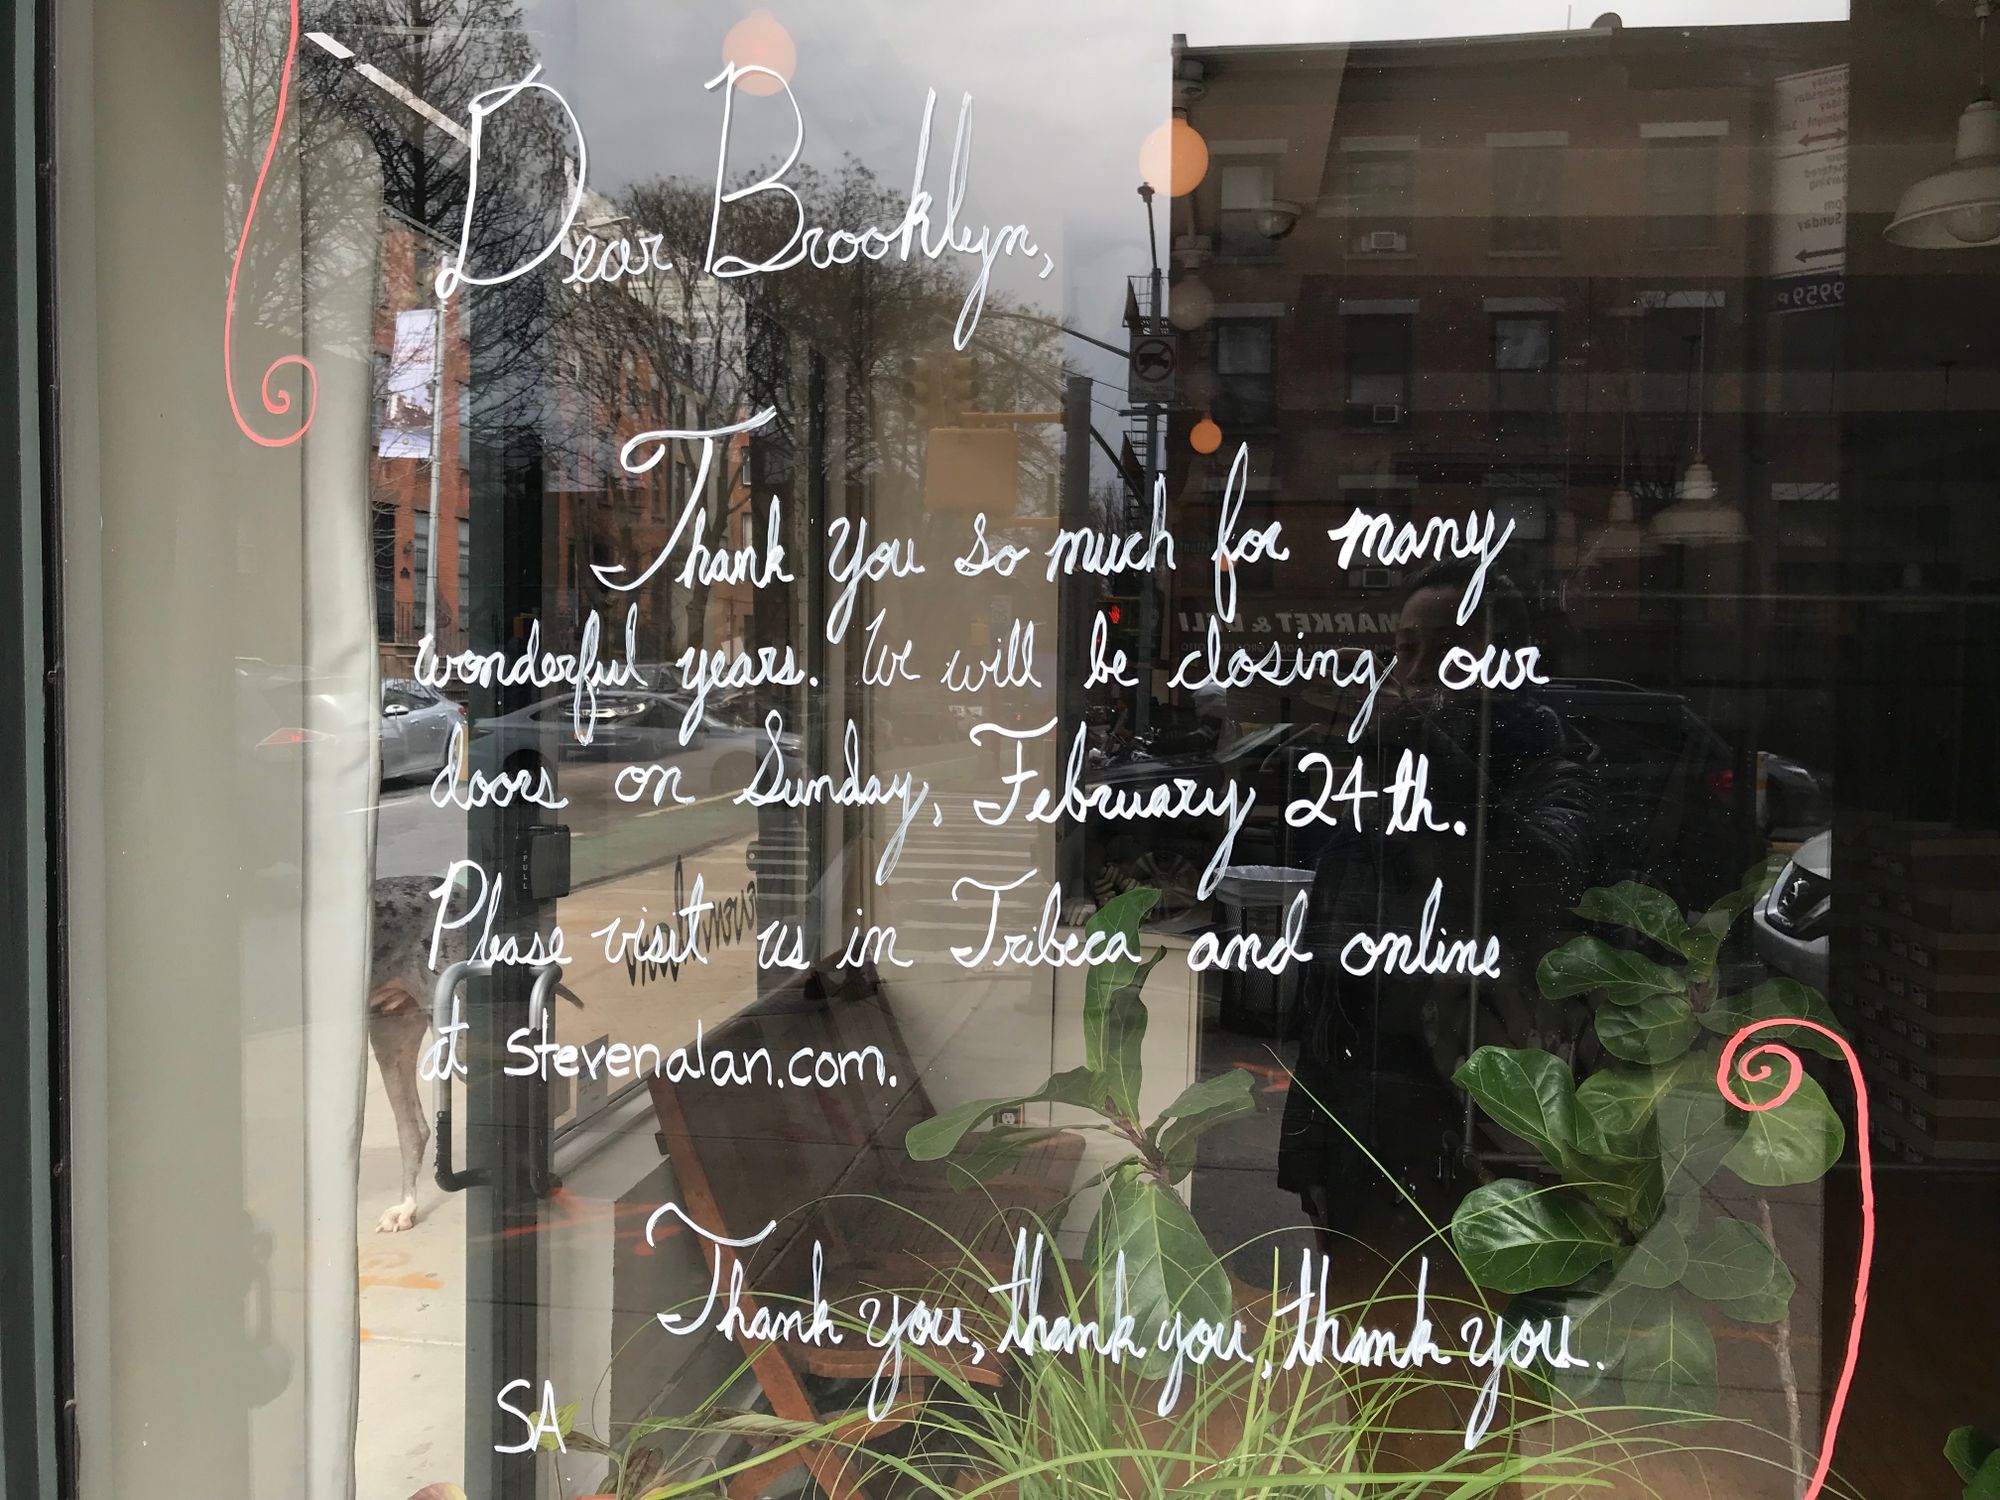 Dear Brooklyn,
Thank you so much for many
wonderful years. We will be closing our
doors on Sunday, February 24th.
Please visit us in Tribeca and online
at stevenalan.com.
Thank you, thank you, thank you.
SA
MARKET & DELI
PULL